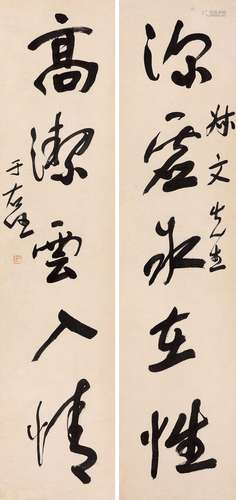 深虛水在性
文先生
高潔雲入情
于右任